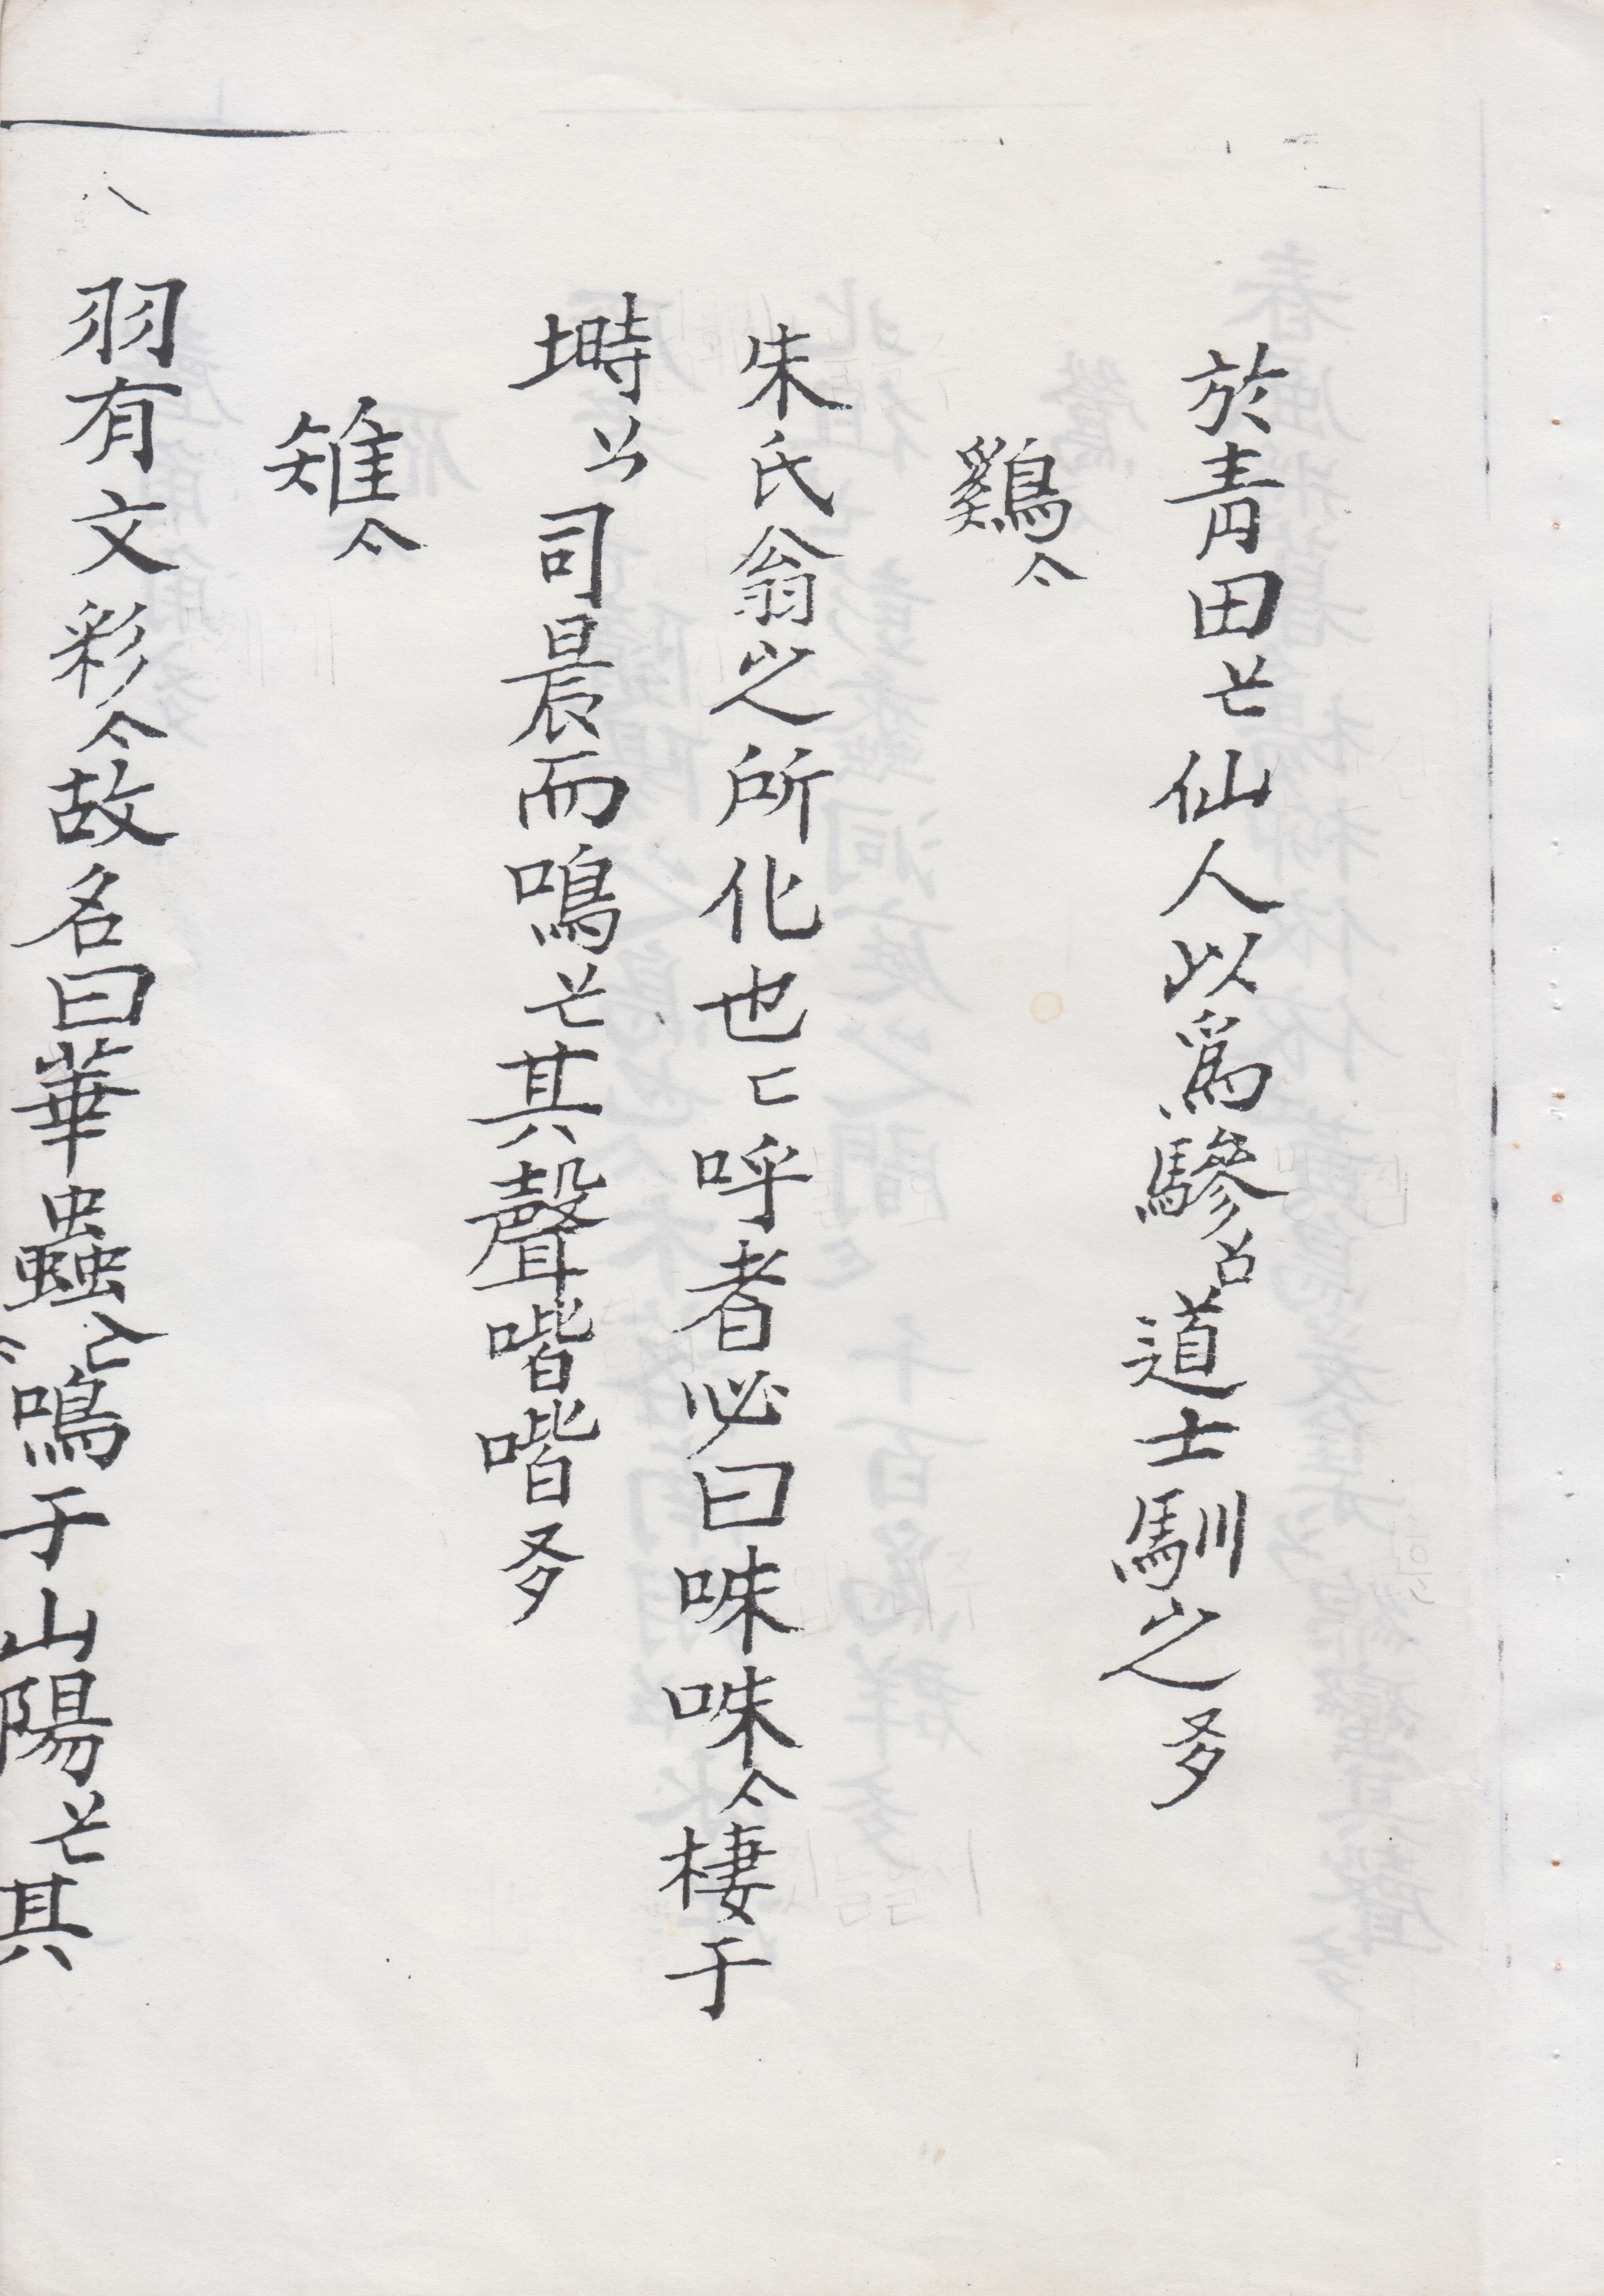 於青田仙人以爲驂道士馴之夛
鷄亽
朱氏翁之所化也匚呼者必曰咮咮亽棲于
塒司晨而鳴其聲喈喈夛
雉亽
羽有文彩亽故名曰華蟲鳴于山陽其